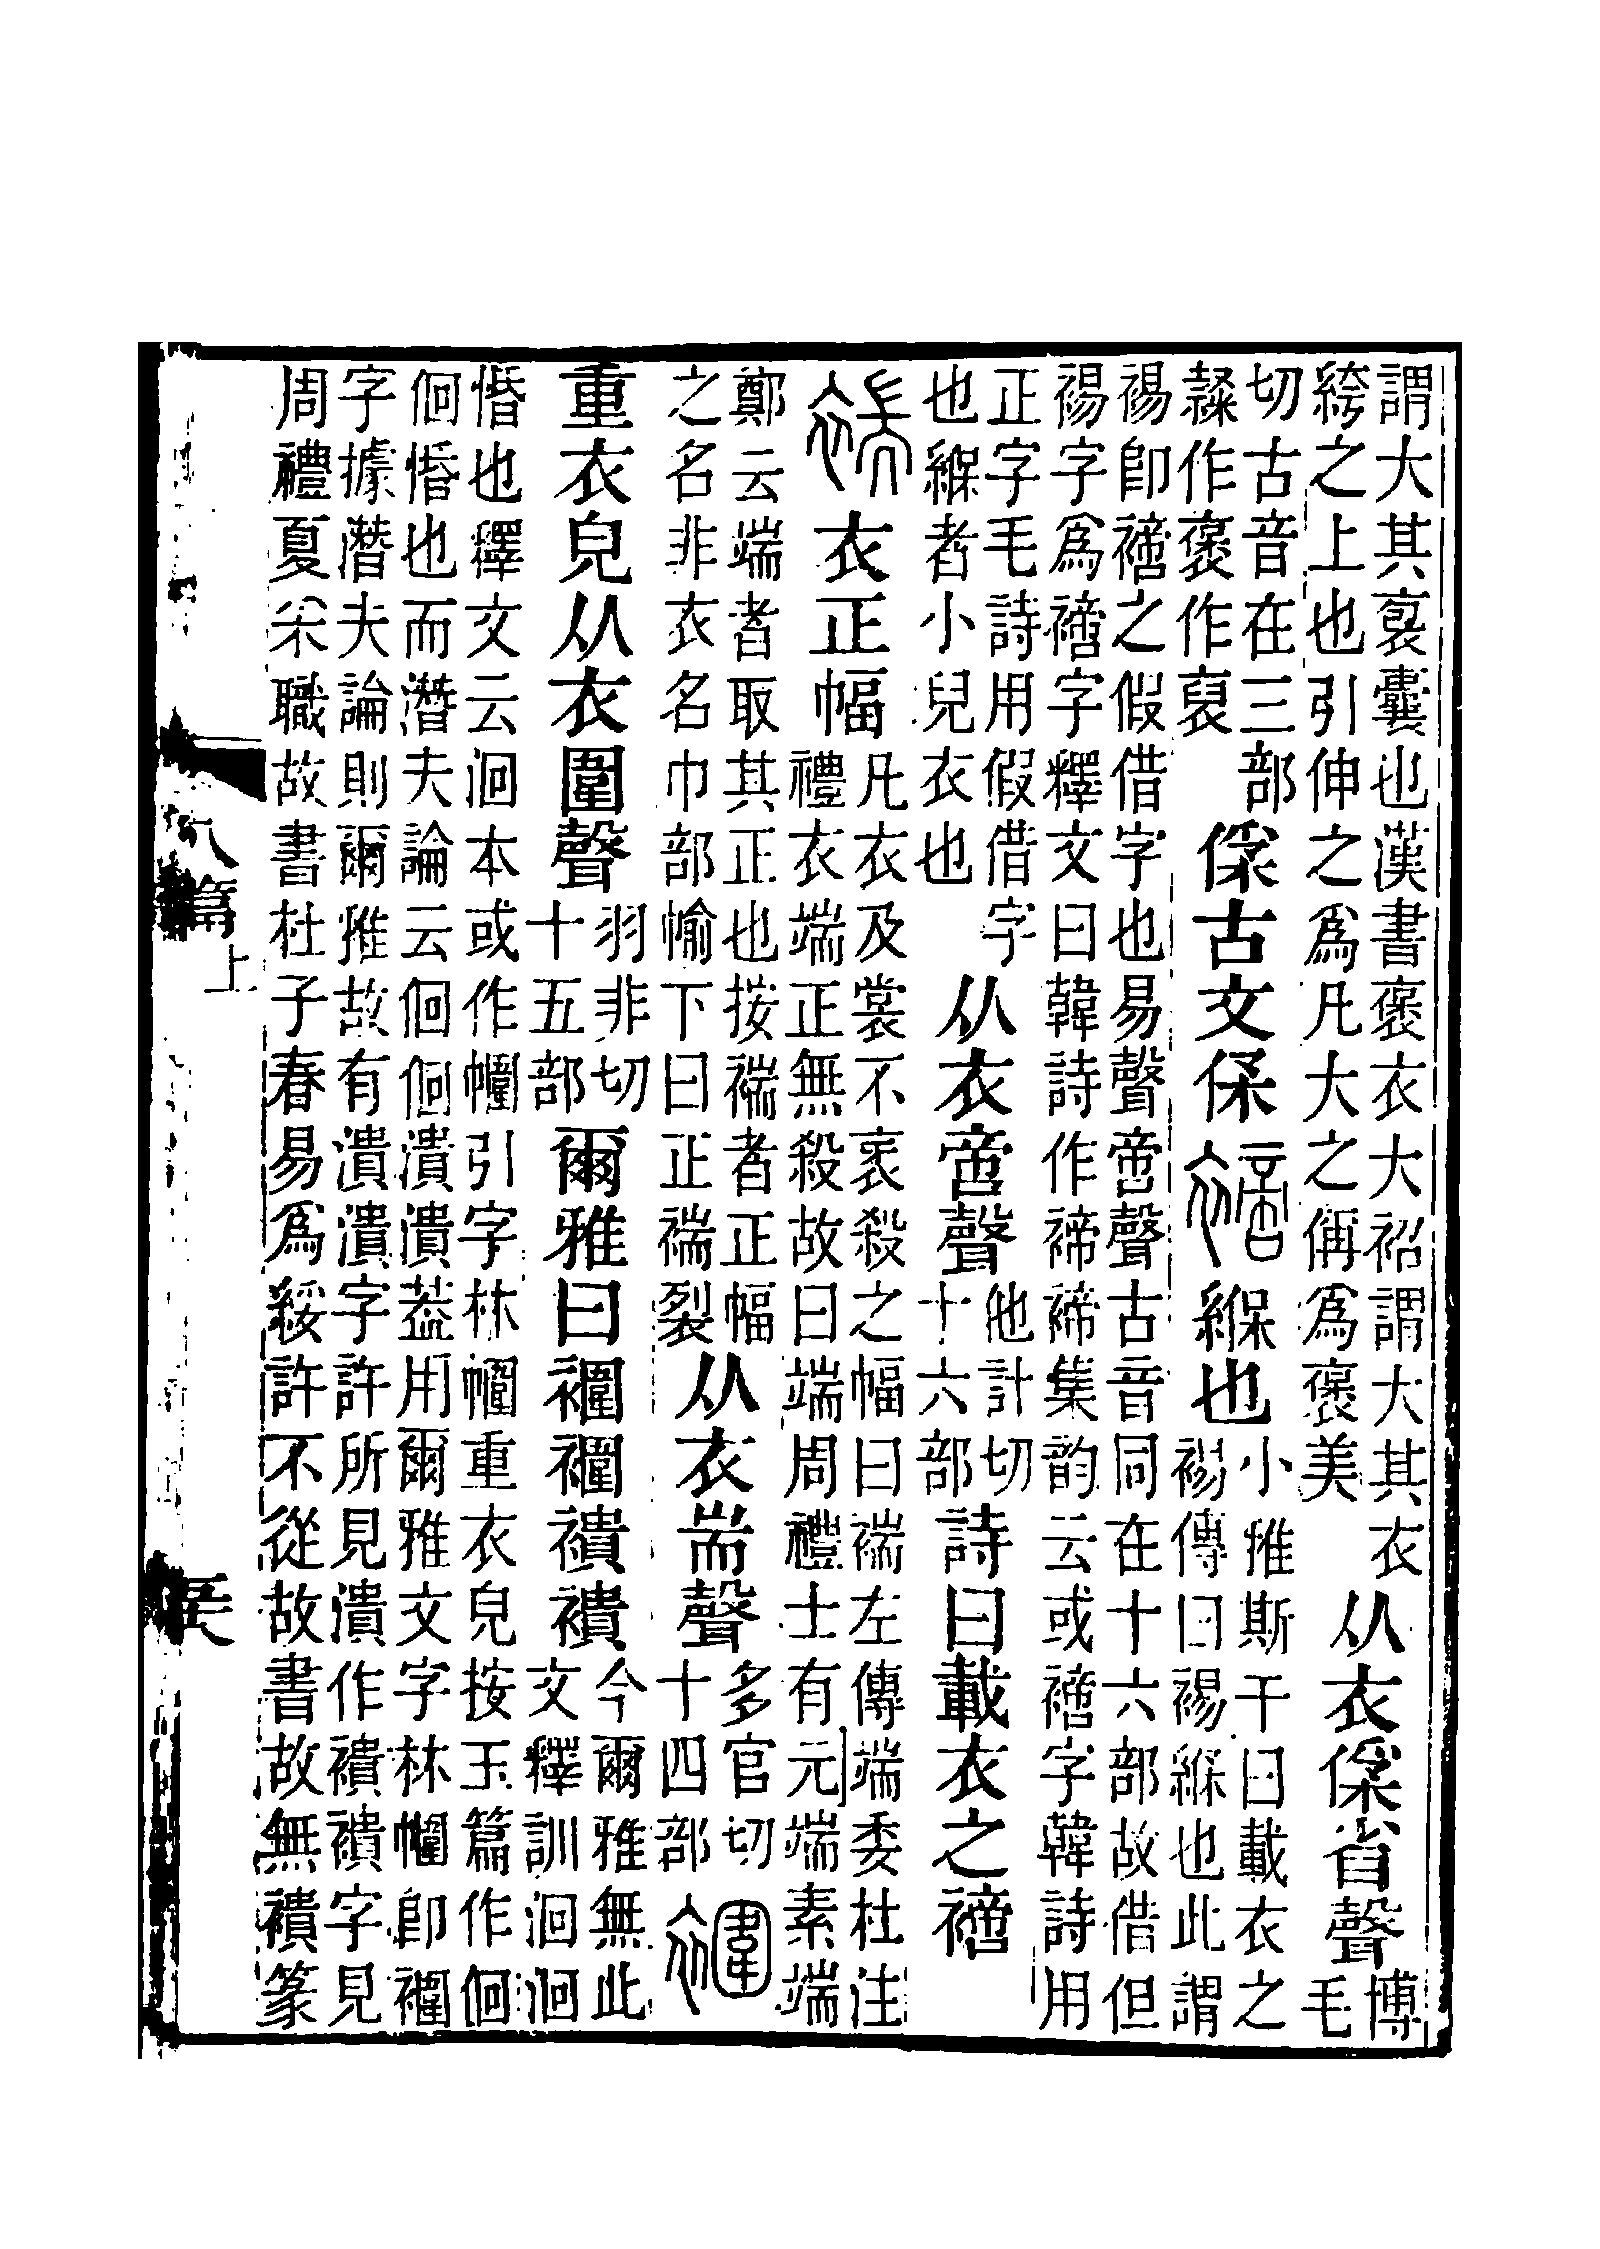 謂大其褱囊也漢書褒衣大袑謂大其衣絝之上也引伸之爲凡大之偁爲褒美从衣𠈃省聲博毛
切古音在三部隸作褒作裒𠈃古文保䙗緥也小雅斯干曰載衣之裼傳曰裼緥也此謂
裼卽䙗之假借字也易聲啻聲古音同在十六部故借但裼字爲䙗字釋文曰韓詩作褅褅集韵云或䙗字韓詩用
正字毛詩用假借字也緥者小兒衣也从衣啻聲他計切十六部詩曰載衣之䙗
褍衣正幅凡衣及裳不衺殺之幅曰褍左傳端委杜注禮衣端正無殺故曰端周禮士有元端素端
鄭云端者取其正也按褍者正幅之名非衣名巾部㡏下曰正褍裂从衣耑聲多官切十四部𧝕
重衣皃从衣圍聲羽非切十五部爾雅曰𧝕𧝕襀襀今爾雅無此文釋訓洄洄
惛也釋文云洄本或作㡡引字林㡡重衣皃按玉篇作佪佪惛也而潛夫論云佪佪潰潰葢用爾雅文字林㡡卽𧝕
字據潛夫論則爾雅故有潰潰字許所見潰作襀襀字見周禮夏采職故書杜子春易爲綏許不從故書故無襀篆
八篇上